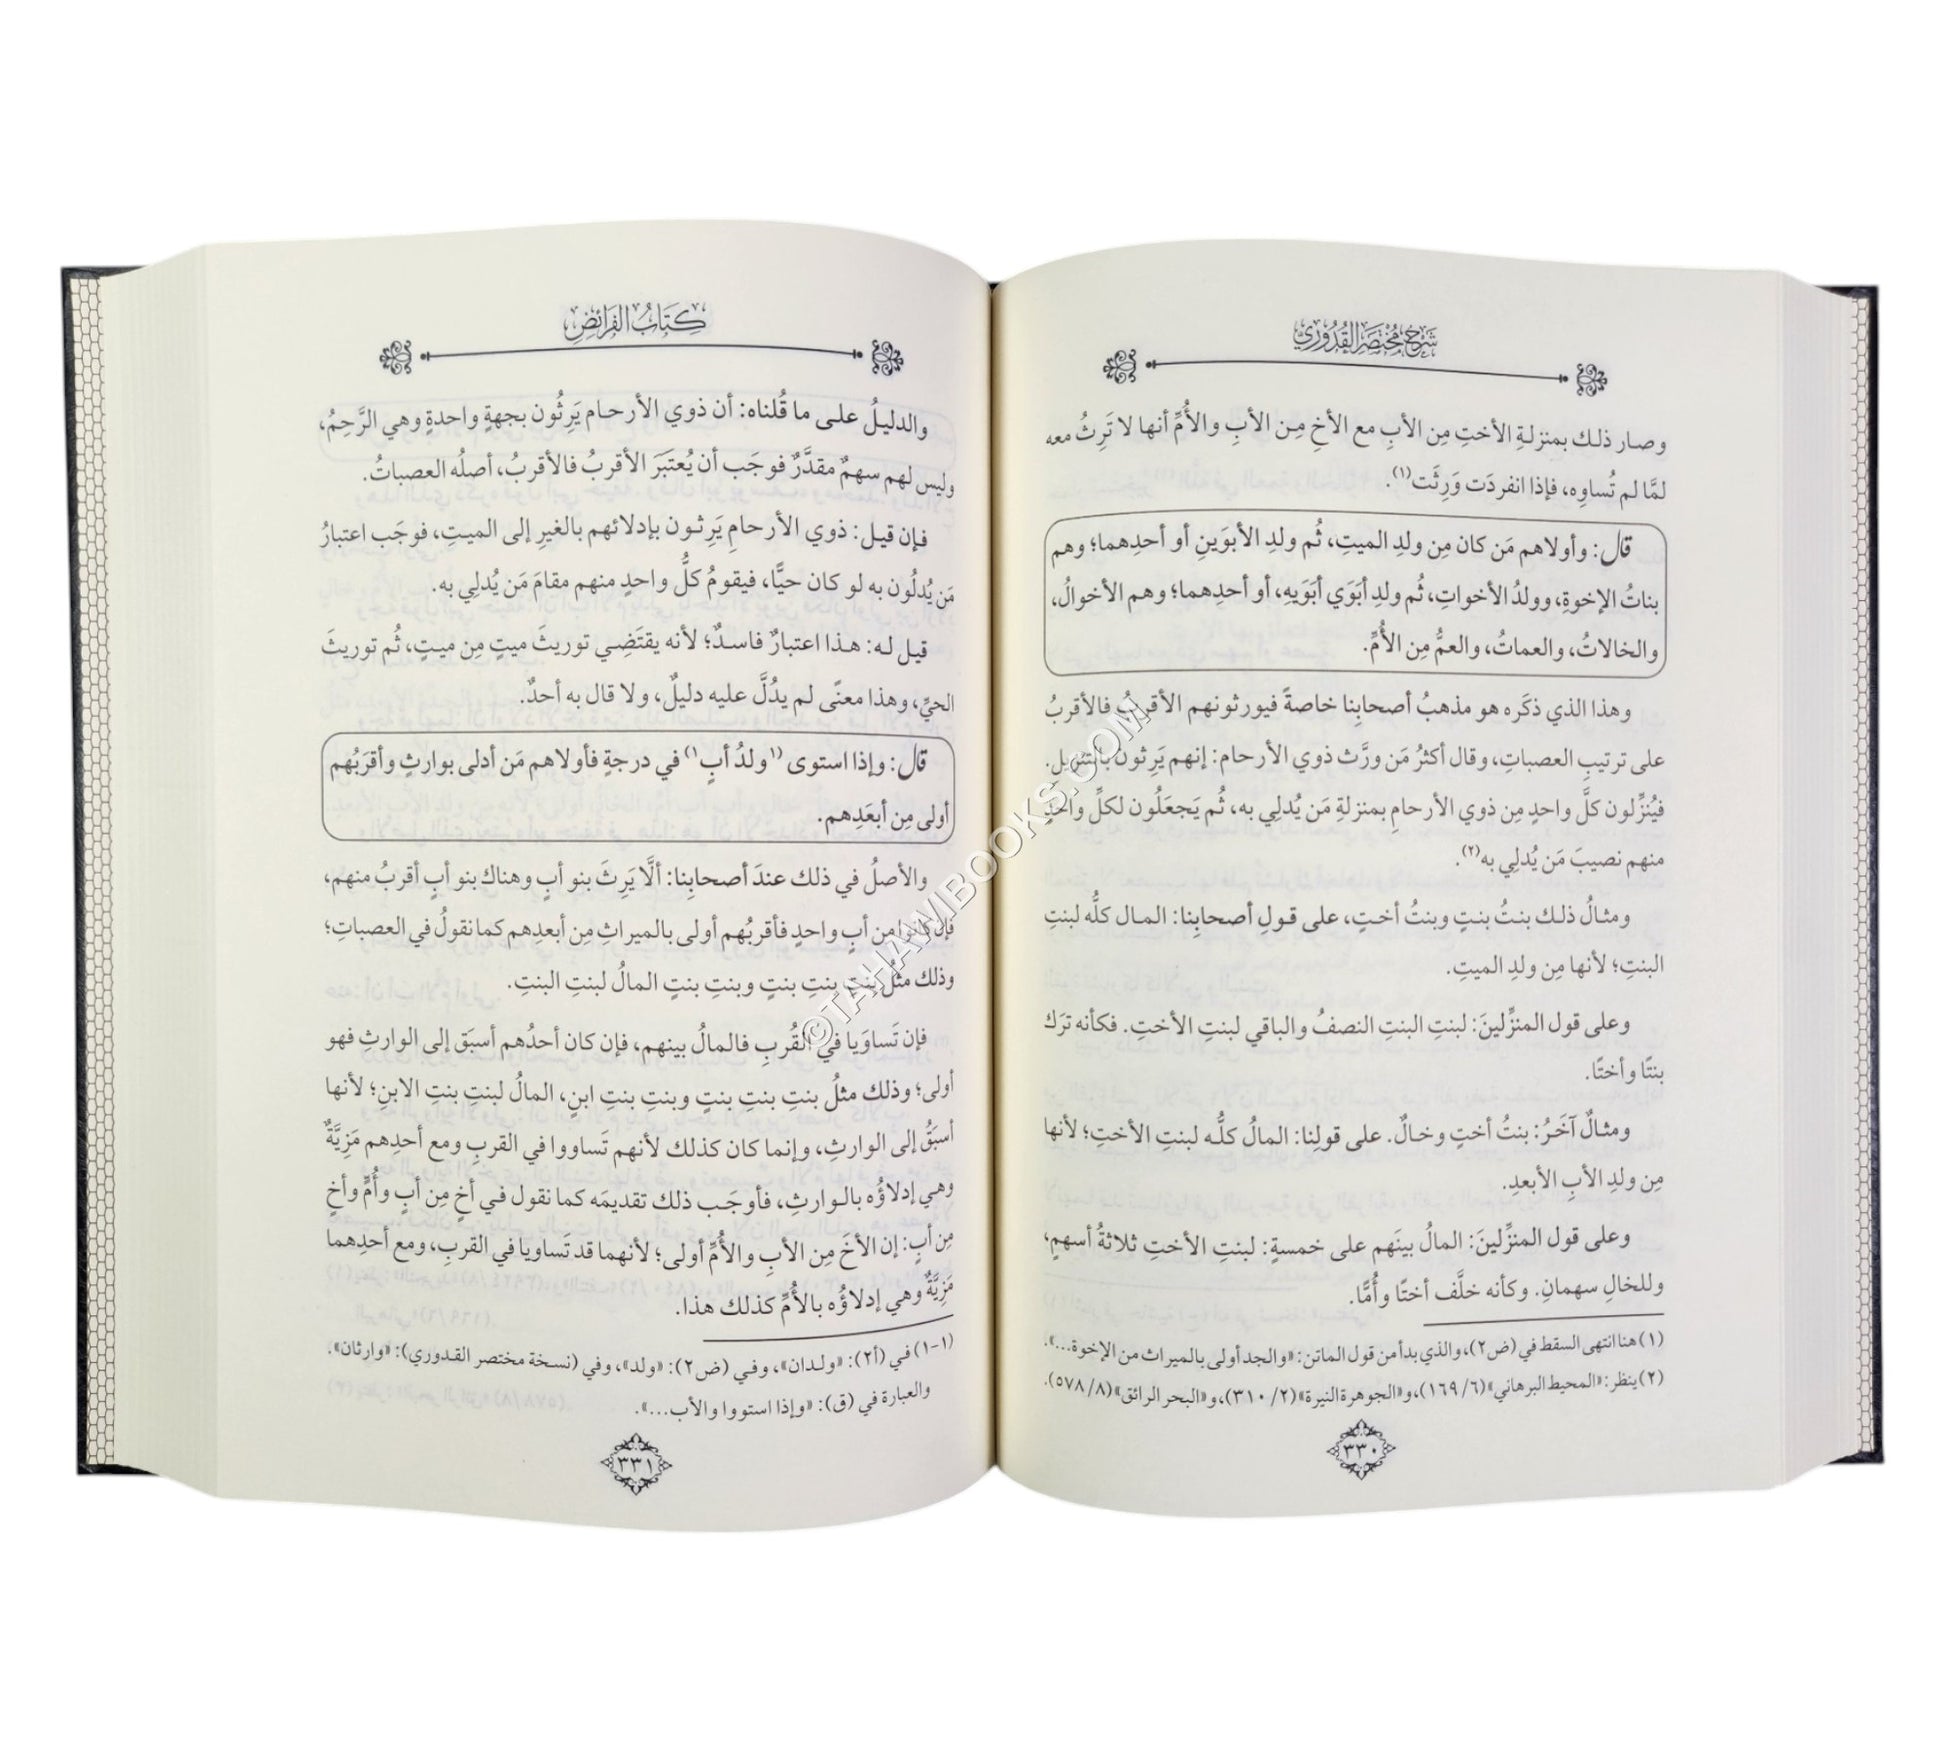 شرح مختصر القدوري
وصار ذلك بمنزلةِ الأختِ مِن الأبِ مع الأخِ مِن الأبِ والأُمِّ أنها لا تَرِثُ معه
لمَّا لم تُساوِه، فإذا انفردَت وَرِثَت(١).
قال: وأولاهم مَن كان مِن ولدِ الميتِ، ثُم ولدِ الأبوَينِ أو أحدِهما؛ وهم
بناتُ الإخوةِ، وولدُ الأخواتِ، ثُم ولدِ أبَوَي أبَوَيهِ، أو أحدِهما؛ وهم الأخوالُ،
والخالاتُ، والعماتُ، والعمُّ مِن الأُمِّ.
وهذا الذي ذكَره هو مذهبُ أصحابِنا خاصةً فيورثونهم الأقربُ فالأقربُ
على ترتيبِ العصباتِ، وقال أكثرُ مَن ورَّث ذوي الأرحام: إنهم يَرِثون بالتنزيلِ.
فيُنزِّلون كلَّ واحدٍ مِن ذوي الأرحامِ بمنزلةِ مَن يُدلِي به، ثُم يَجعَلُون لكلِّ واحدٍ
منهم نصيبَ مَن يُدلِي به(٢).
ومثالُ ذلك بنتُ بنتٍ وبنتُ أختٍ، على قولِ أصحابِنا: المال كلُّه لبنتِ
البنتِ؛ لأنها مِن ولدِ الميتِ.
وعلى قول المنزِّلينَ: لبنتِ البنتِ النصفُ والباقي لبنتِ الأختِ. فكأنه ترَك
بنتًا وأختًا.
ومثالٌ آخَرُ: بنتُ أختٍ وخالٌ. على قولِنا: المالُ كلُّه لبنتِ الأختِ؛ لأنها
مِن ولدِ الأبِ الأبعدِ.
وعلى قول المنزِّلينَ: المالُ بينَهم على خمسةٍ: لبنتِ الأختِ ثلاثةُ أسهمٍ،
وللخالِ سهمانِ. وكأنه خلَّف أختًا وأُمًّا.
(١) هنا انتهى السقط في (ض٢)، والذي بدأ من قول الماتن: «والجد أولى بالميراث من الإخوة...».
(٢) ينظر: «المحيط البرهاني» (٦/ ١٦٩)، و«الجوهرة النيرة» (٢/ ٣١٠)، و«البحر الرائق» (٨/ ٥٧٨).
٣٣٠
كتاب الفرائض
والدليلُ على ما قُلناه: أن ذوي الأرحام يَرِثُون بجهةٍ واحدةٍ وهي الرَّحِمُ،
وليس لهم سهمٌ مقدَّرٌ فوجَب أن يُعتبَرَ الأقربُ فالأقربُ، أصلُه العصباتُ.
فإن قيل: ذوي الأرحامِ يَرِثون بإدلائهم بالغيرِ إلى الميتِ، فوجَب اعتبارُ
مَن يُدلُون به لو كان حيًّا، فيقومُ كلُّ واحدٍ منهم مقامَ مَن يُدلِي به.
قيل له: هذا اعتبارٌ فاسدٌ؛ لأنه يقتَضِي توريثَ ميتٍ مِن ميتٍ، ثُم توريثَ
الحيِّ، وهذا معنًى لم يدُلَّ عليه دليلٌ، ولا قال به أحدٌ.
قال: وإذا استوى (١ولدُ أبٍ١) في درجةٍ فأولاهم مَن أدلى بوارثٍ وأقرَبُهم
أولى مِن أبعَدِهم.
والأصلُ في ذلك عندَ أصحابِنا: ألَّا يَرِثَ بنو أبٍ وهناك بنو أبٍ أقربُ منهم،
فإن كانوا من أبٍ واحدٍ فأقربُهم أولى بالميراثِ مِن أبعدِهم كما نقولُ في العصباتِ؛
وذلك مثلُ بنتِ بنتِ بنتٍ وبنتِ بنتٍ المالُ لبنتِ البنتِ.
فإن تَساوَيا في القُربِ فالمالُ بينهم، فإن كان أحدُهم أسبَق إلى الوارثِ فهو
أولى؛ وذلك مثلُ بنتِ بنتِ بنتٍ وبنتِ بنتِ ابنٍ، المالُ لبنتِ بنتِ الابنِ؛ لأنها
أسبَقُ إلى الوارثِ، وإنما كان كذلك لأنهم تَساووا في القربِ ومع أحدِهم مَزِيَّةٌ
وهي إدلاؤُه بالوارثِ، فأوجَب ذلك تقديمَه كما نقول في أخٍ مِن أبٍ وأُمٍّ وأخٍ
مِن أبٍ: إن الأخَ مِن الأبِ والأُمِّ أولى؛ لأنهما قد تَساويا في القربِ، ومع أحدِهما
مَزِيَّةٌ وهي إدلاؤُه بالأُمِّ كذلك هذا.
(١-١) في (أ٢): «ولدان»، وفي (ض٢): «ولد»، وفي (نسخة مختصر القدوري): «وارثان».
والعبارة في (ق): «وإذا استووا والأب...».
٣٣١
©TAHAWIBOOKS.COM